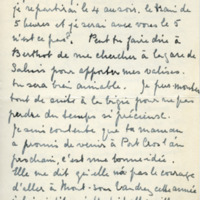 je repartirai le 4 au soir. le train de
5 heures et je serai avec vous le 5
n'est-ce pas. Peut tu faire dire à
Berthot de me chercher à la gare de
pour apporter mes valises.
tu seras bien aimable. Je peux monter
tout de suite à la bigue pour ne pas
perdre du temps si précieux.
Je suis contente que ta maman
a promis de venir à Port Cros l'an
prochain, c'est une bonne idée.
Elle me dit qu'elle n'a pas le courage
d'aller à Mont-sou cette année